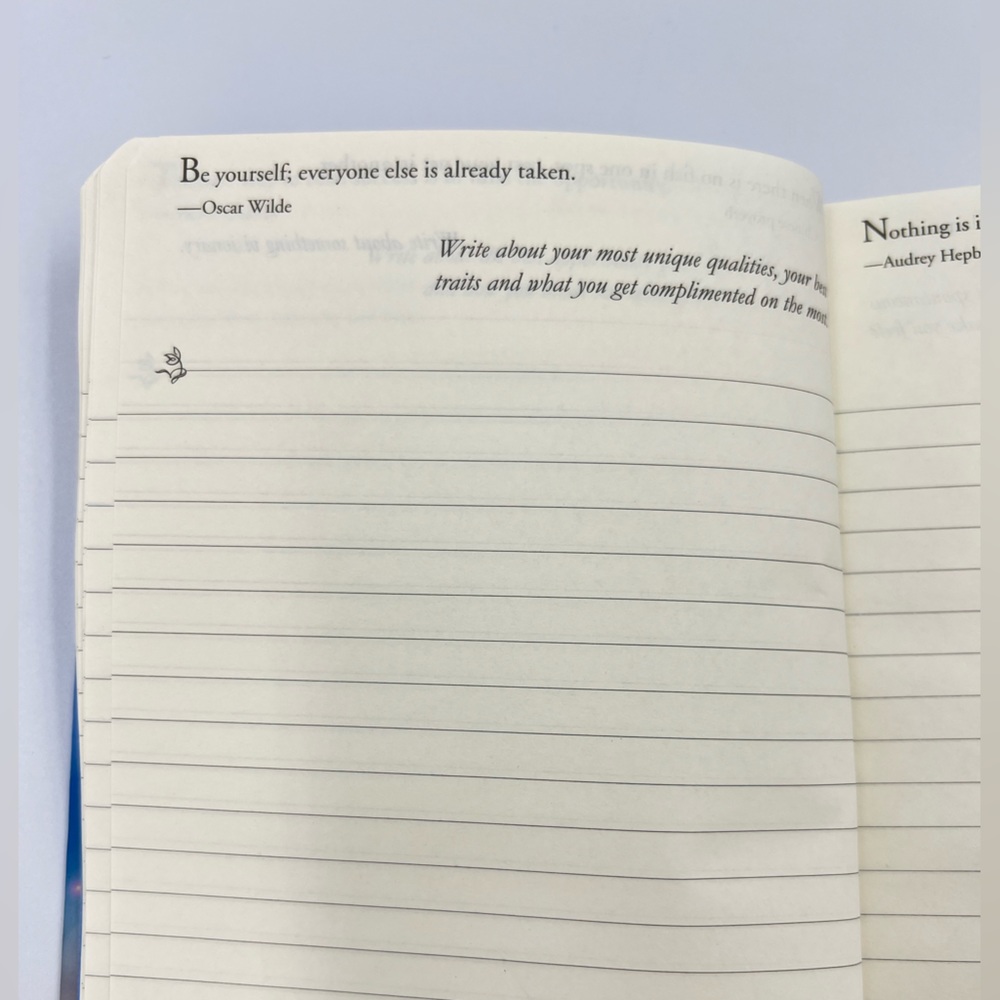 Be yourself; everyone else is already taken.
—Oscar Wilde
Write about your most unique qualities, your best
traits and what you get complimented on the most.
Nothing is i
—Audrey Hepb